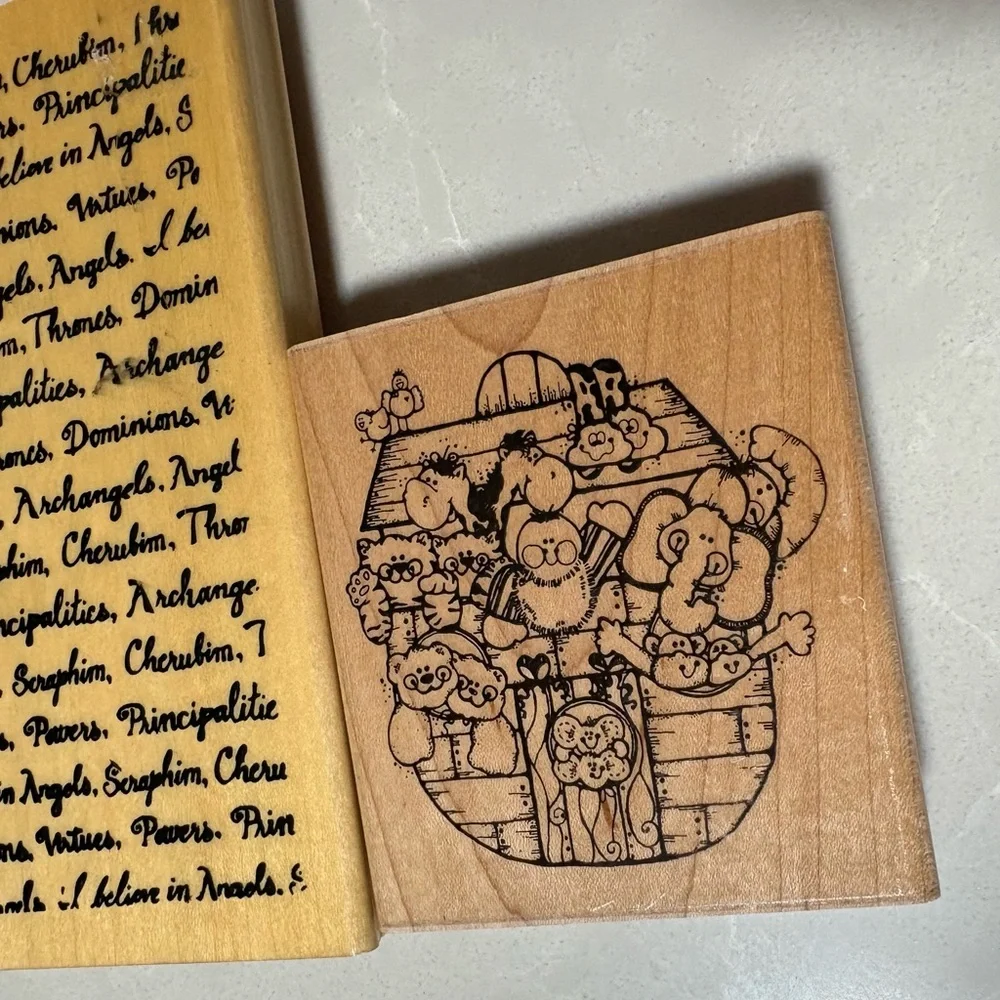 , Cherubim, Thr
rs. Principalitie
believe in Angels, S
nions. Virtues, Po
gels, Angels. I be
m, Thrones, Domin
palities, Archange
rones, Dominions. Vi
, Archangels, Angel
phim, Cherubim, Thron
ncipalities, Archange
, Seraphim, Cherubim, T
s, Powers, Principalitie
in Angels, Seraphim, Cheru
ons, Virtues, Powers. Prin
ngels. I believe in Angels. S